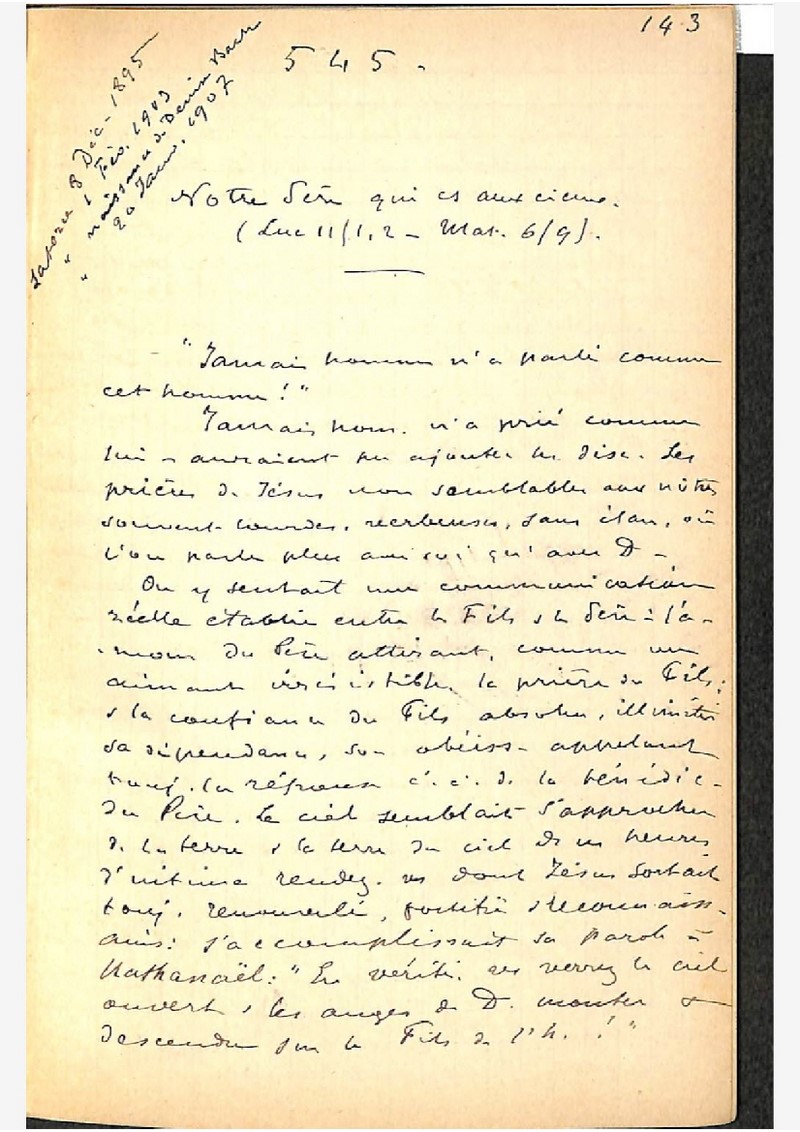 143
545.
8 Déc. 1895
" 1 Fév. 1903
" naissance de Denise Bach
" 20 Janv. 1907
Notre Père qui es aux cieux.
(Luc 11/1,2 - Mat. 6/9).
"Jamais homme n'a parlé comme
cet homme!"
Jamais hom. n'a prié comme
lui - auraient pu ajouter les disc. Les
prières de Jésus non semblables aux nôtres
souvent lourdes, verbeuses, sans élan, où
l'on parle plus avec soi qu'avec D -
On y sentait une communication
réelle établie entre le Fils & le Père : l'a-
-mour du Père attirant, comme un
aimant irrésistible, la prière du Fils;
& la confiance du Fils absolue, illimitée
sa dépendance, son obéiss- appelant
touj. la réponse c. à. d. la bénédic-
du Père. Le ciel semblait s'approcher
de la terre & la terre du ciel ds ces heures
d'intime rendez-vs dont Jésus sortait
touj. renouvelé, fortifié & reconnaiss-
ainsi s'accomplissait sa parole à
Nathanaël: "En vérité, vs verrez le ciel
ouvert & les anges de D. monter &
descendre sur le Fils de l'h. !"